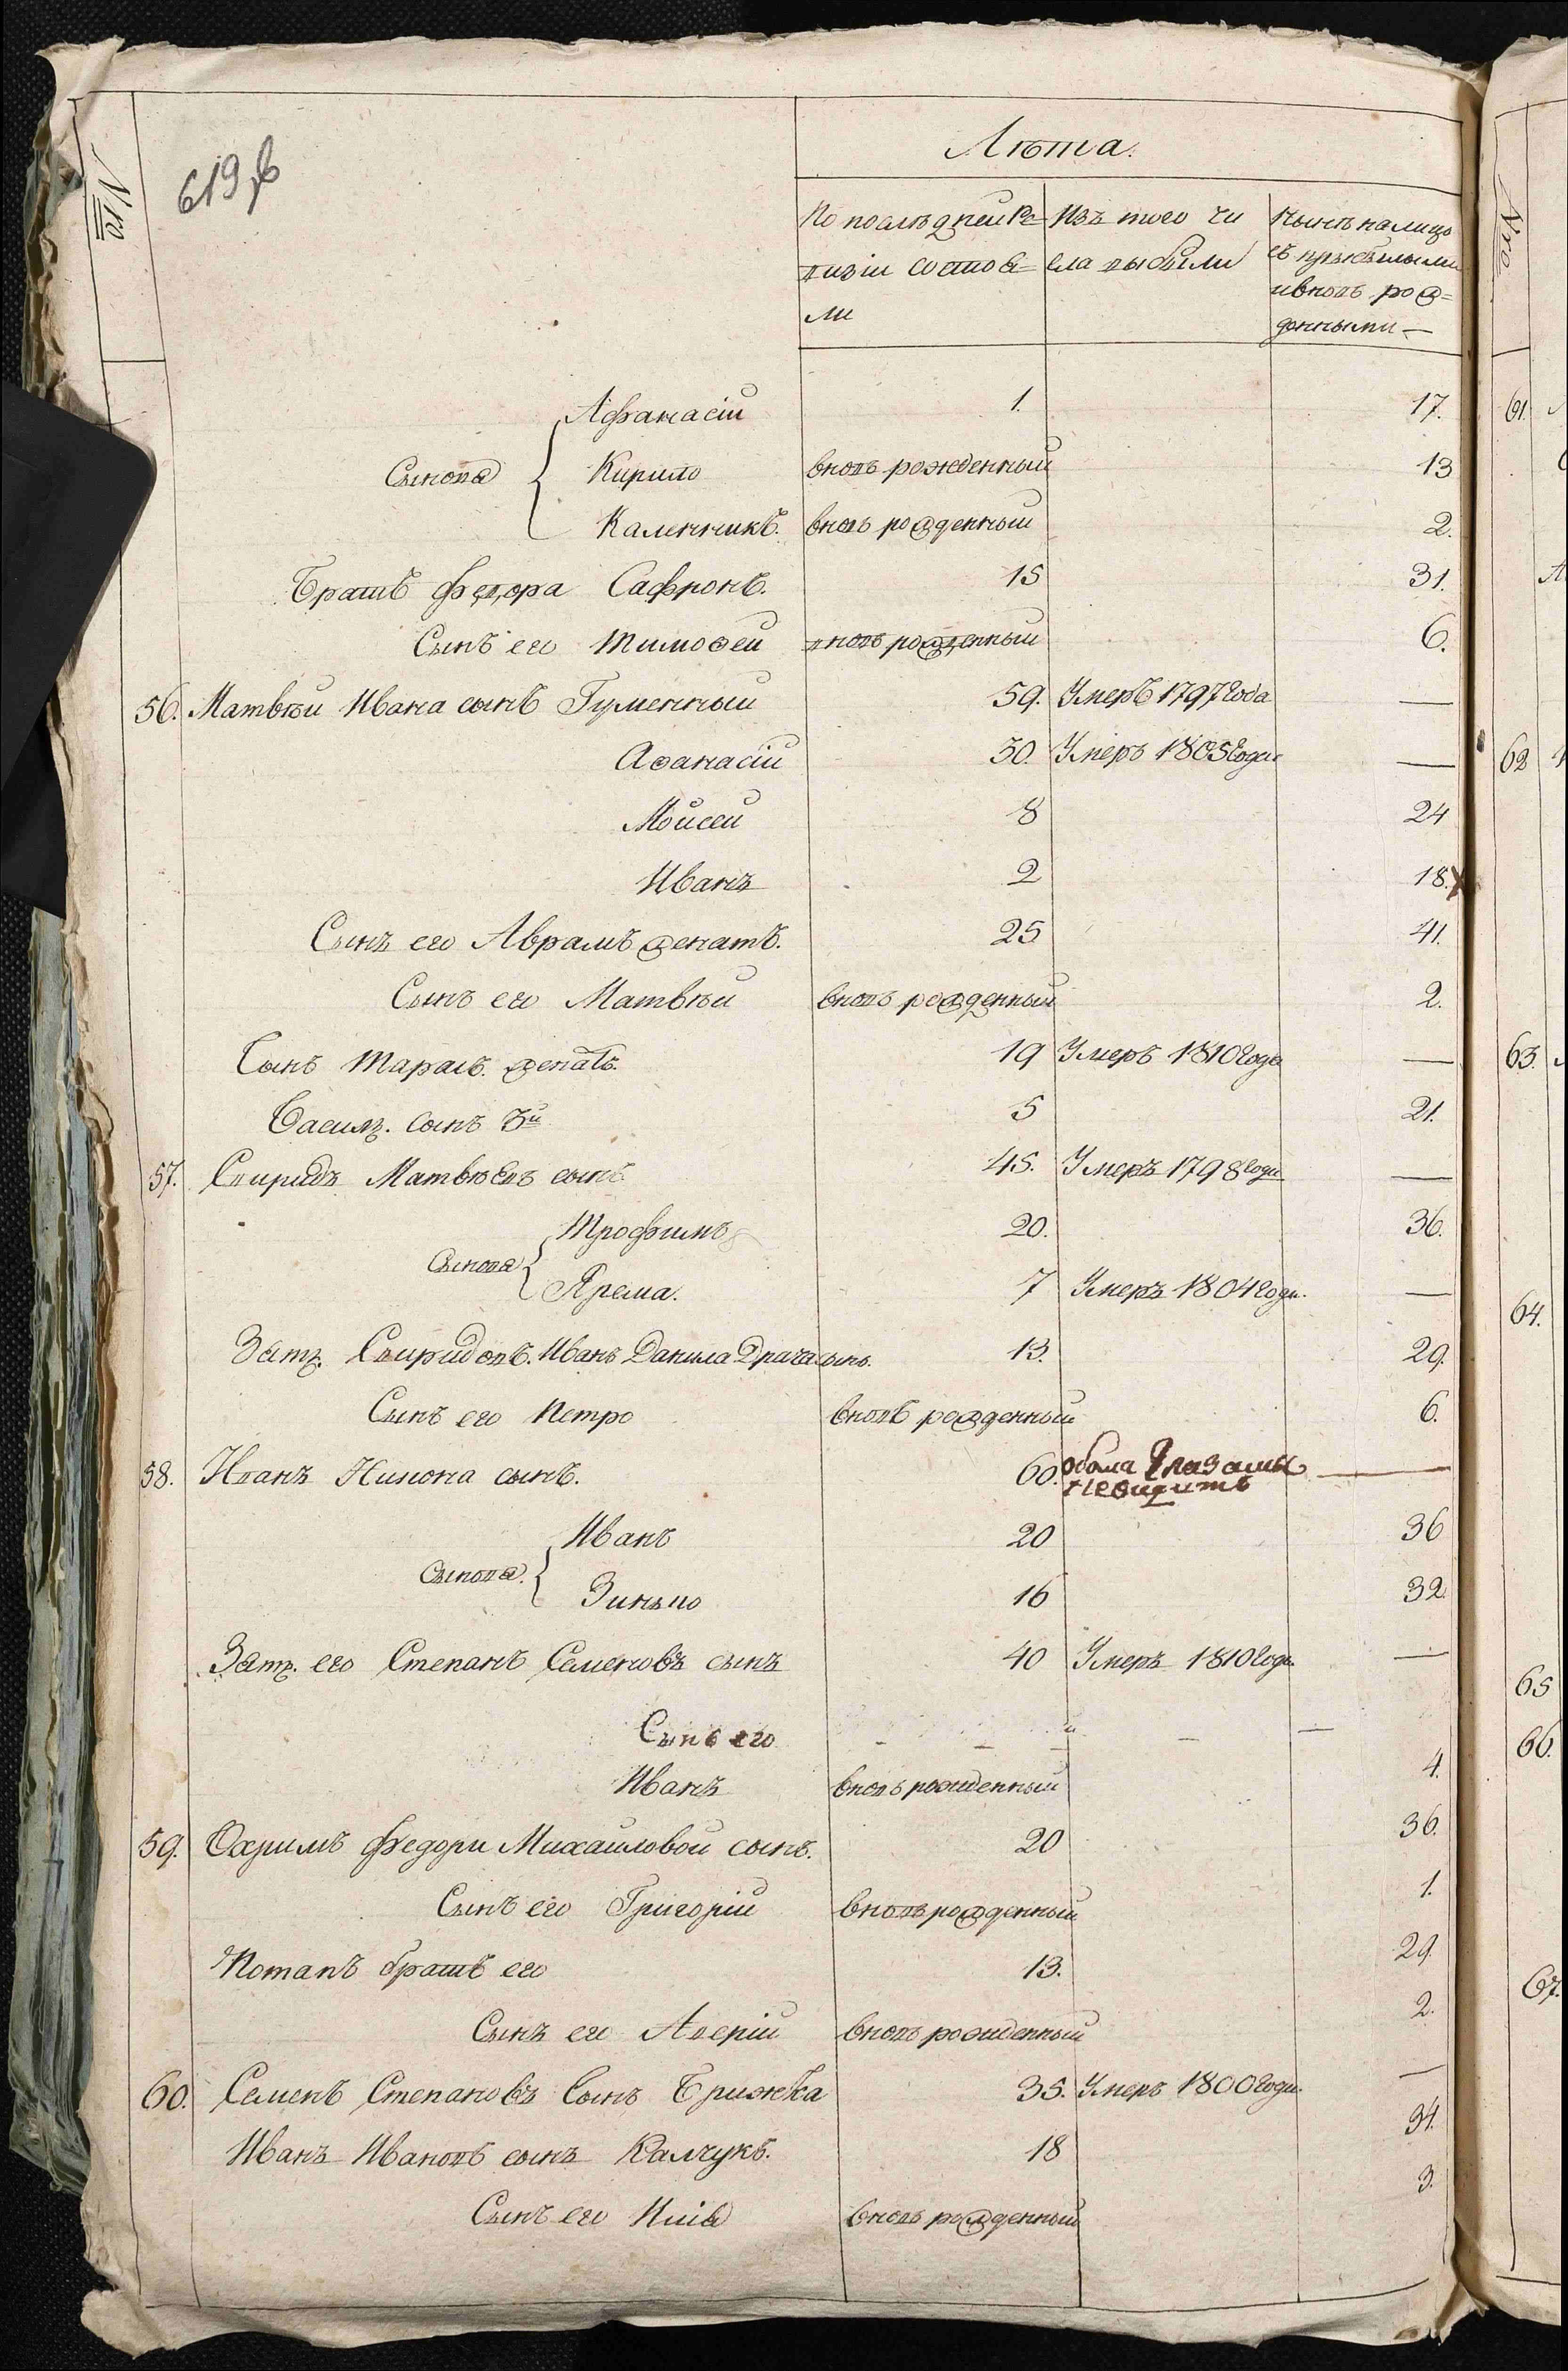 Nro
619 б
Лѣта.
По послѣдней Ре=
визіи состоя=
ли
Изъ того чи
сла выбыли
Нынѣ налицо
съ прибылыми
и вновь рож=
денными —
Афанасіи 1. 17.
Сынова Кирило вновь рожденный 13
Каленникъ. вновь рожденный 2.
Братъ Федора Сафронъ. 15 31.
Сынъ его Тимоѳеи вновь рожденный 6.
56. Матвѣи Ивана сынъ Гуменный 59. Умеръ 1797 года —
Аѳанасіи 30. Умеръ 1805 года —
Мойсеи 8 24
Иванъ 2 18.
Сынъ его Аврамъ женатъ. 25 41.
Сынъ его Матвѣи вновь рожденный 2.
Сынъ Тарасъ. женатъ. 19 Умеръ 1810 года —
Василь. сынъ 3й 5 21.
57. Спиридъ Матвѣевъ сынъ 45. Умеръ 1798 года —
Трофимъ 20. 36.
Сынова
Ярема. 7 Умеръ 1804 года. —
Зять. Спиридовъ. Иванъ Данила Драча сынъ. 13. 29.
Сынъ его Петро вновь рожденный 6.
58. Иванъ Никона сынъ. 60. обома глазамы —
невидитъ
Иванъ 20 36
Сынова.
Зинько 16 32.
Зять. его Степанъ Семеновъ сынъ 40 Умеръ 1810 года —
Сынъ его
Иванъ вновь рожденный 4.
59. Охримъ Федори Михайловой сынъ. 20 36.
Сынъ его Григоріи вновь рожденный 1.
Потапъ братъ его 13. 29.
Сынъ его Аверіи вновь рожденный 2.
60. Семенъ Степановъ Сынъ Брижка 35. Умеръ 1800 года. —
Иванъ Ивановъ сынъ Калчукъ. 18 34.
Сынъ его Илія вновь рожденный 3.
Nro
61.
62
63.
64.
65
66.
67.